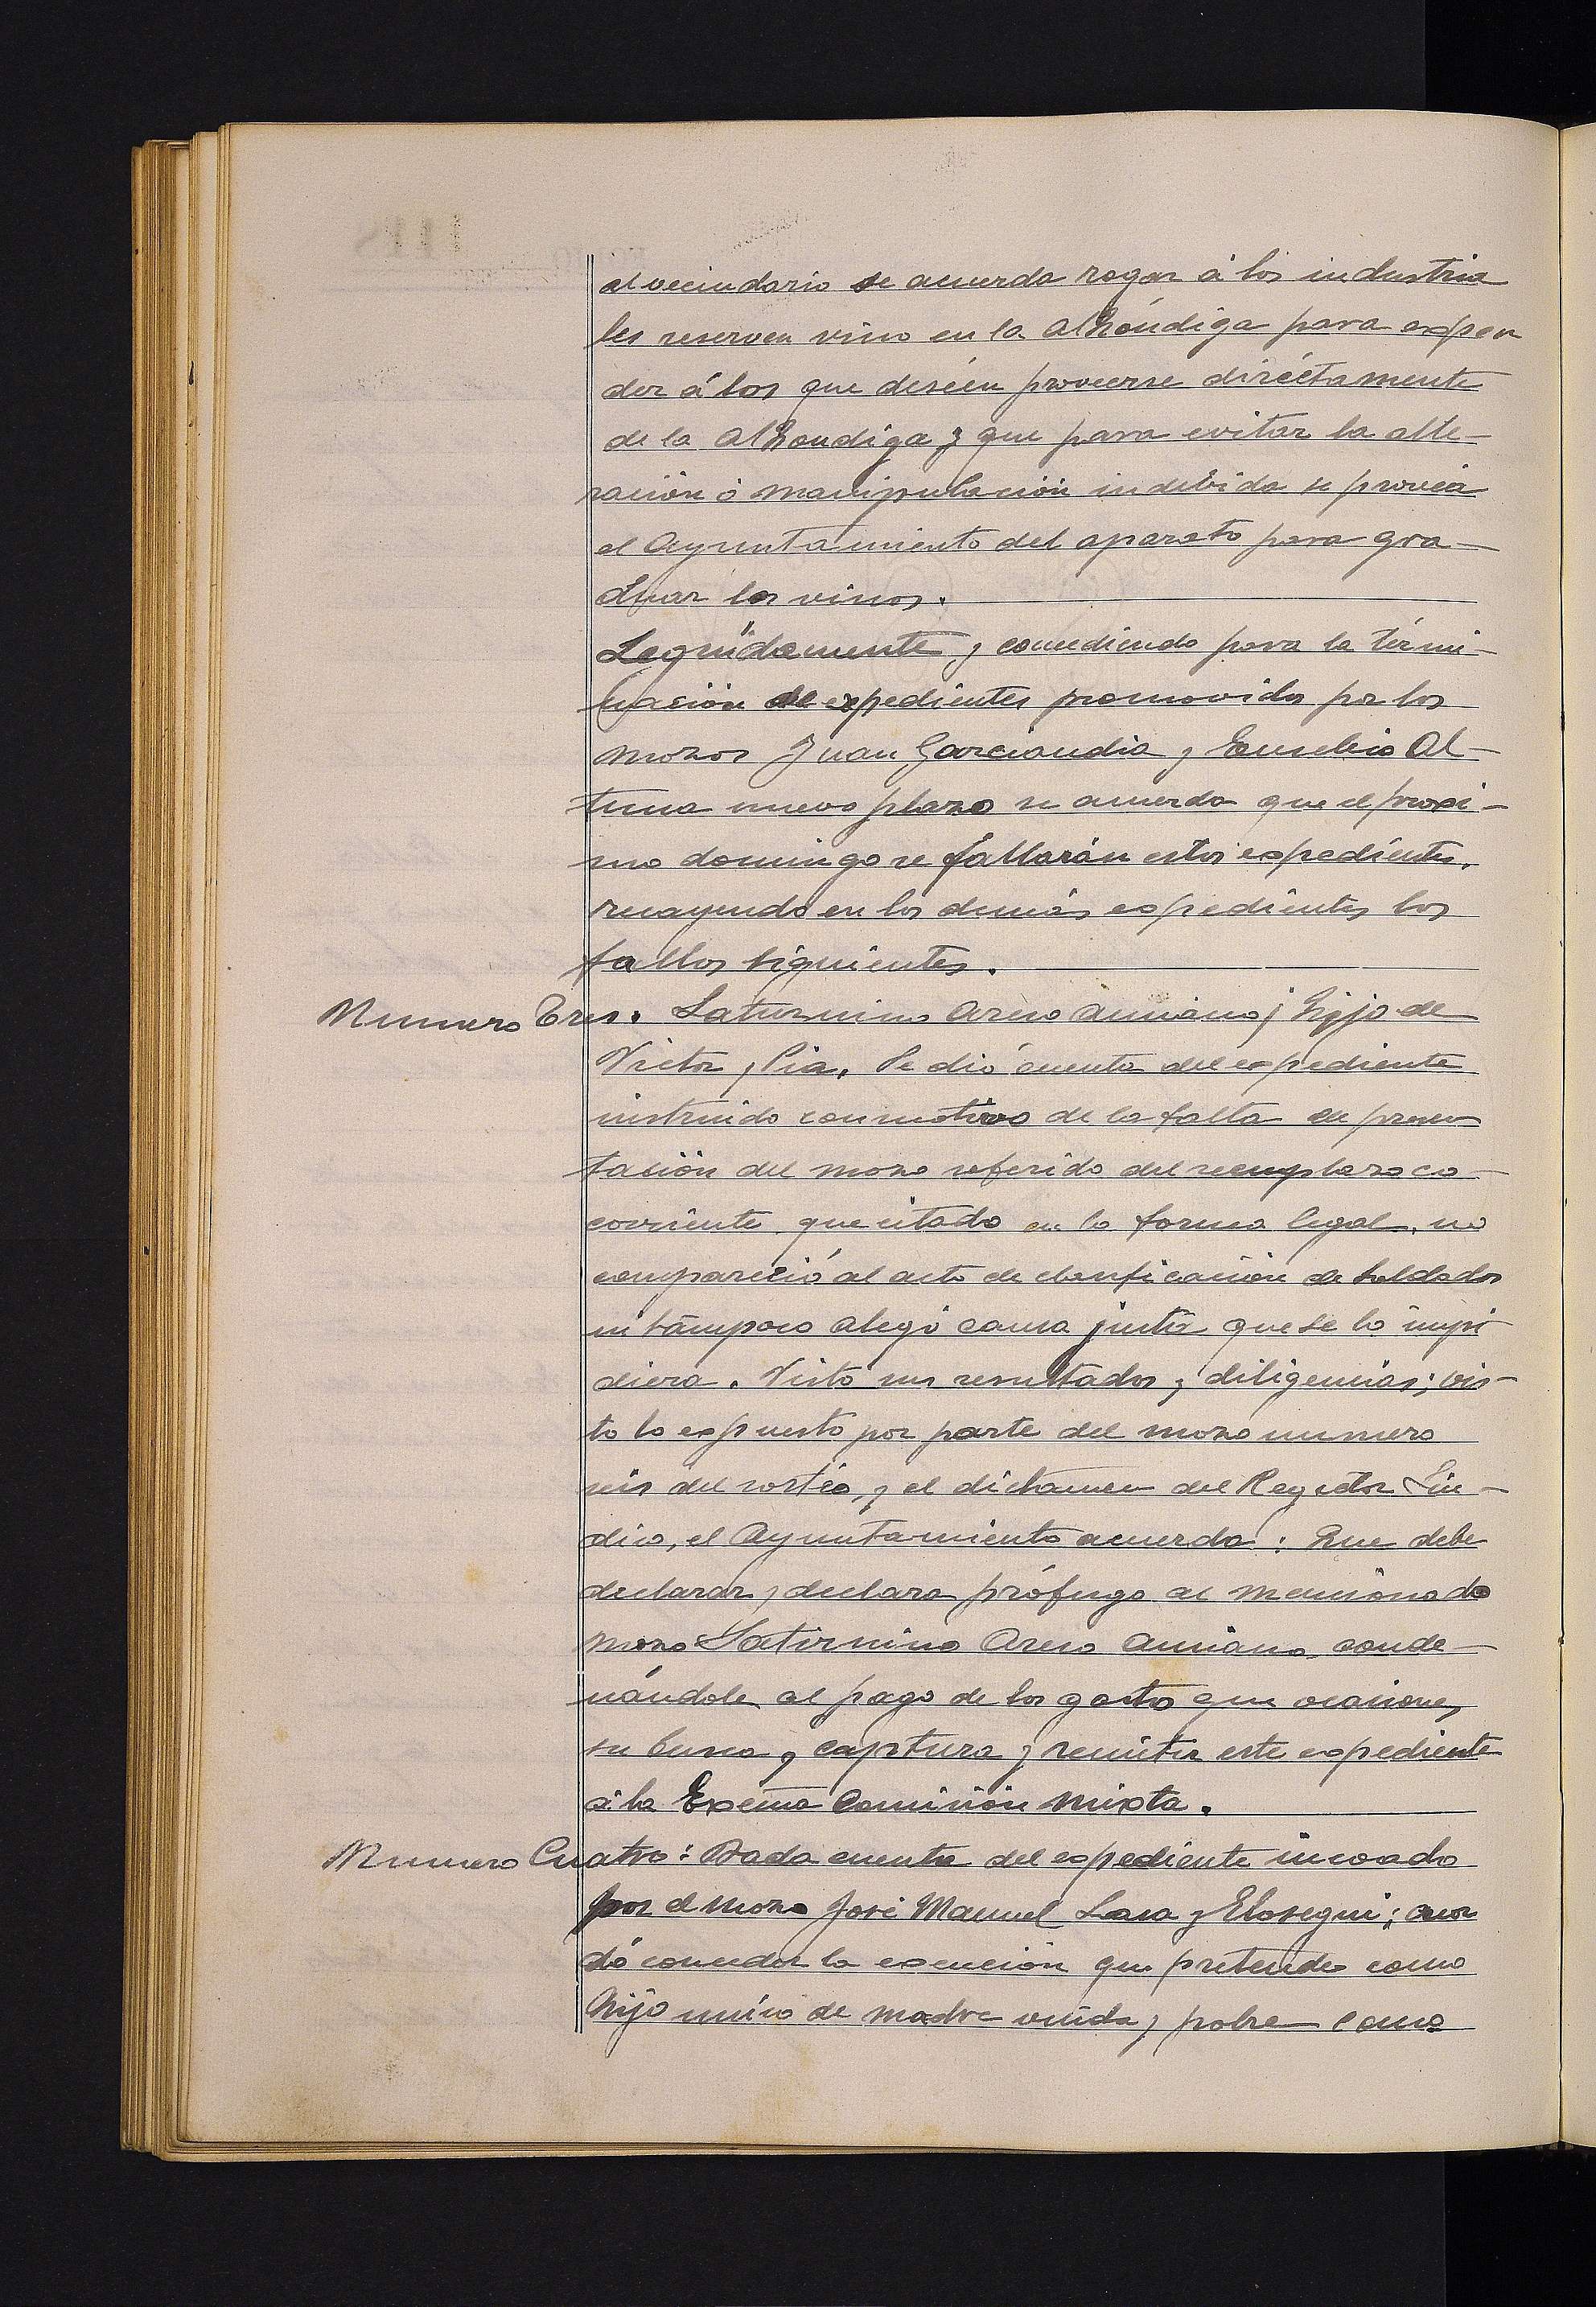 al vecindario se acuerda rogar á los industria
les reserven vino en la Alhóndiga para expen
der á los que deséen proveerse diréctamente
de la Alhondiga y que para evitar la alte-
ración ó manipulación indebida se provéa
el Ayuntamiento del aparato para gra-
duar los vinos.
Seguidamente y concediendo para la termi-
nación de expedientes promovidos por los
mozos Juan Garciandia y Eusebio Al-
tuna nuevo plazo se acuerda que el proxi-
mo domingo se fallarán estos expedientes,
recayendo en los demás expedientes los
fallos siguientes.
Numero Tres. Saturnino Areso Amiano, hijo de
Victor y Pia. Se dió cuenta del expediente
instruido con motivo de la falta de presen
tación del mozo referido del reemplazo co-
corriente que citado en la forma legal, no
compareció al acto de clasificación de soldados
ni támpoco alegó causa justa que se lo impi
diera. Visto sus resultados y diligencias; vis-
to lo expuesto por parte del mozo numero
seis del sortéo, y el dictamen del Regidor Sin-
dico, el Ayuntamiento acuerda: Que debe
declarar y declara prófugo al mencionado
mozo Saturnino Areso Amiano, conde-
nándole al pago de los gastos que ocasione,
su busca y captura y remitir este expediente
á la Excma Comisión Mixta.
Numero Cuatro: Dada cuenta del expediente incoado
por el mozo José Manuel Lasa y Elosegui; acor
dó conceder la exención que pretende como
hijo único de madre viuda y pobre como